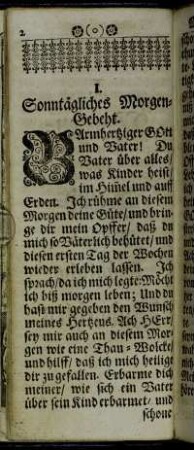 2
I.
Sonntägliches Morgen-
Gebeht.
BArmhertziger GOtt
und Vater! Du
Vater über alles/
was Kinder heist/
im Hiṁel und auff
Erden. Ich rühme an diesem
Morgen deine Güte/ und brin-
ge dir mein Opffer/ daß du
mich so Väterlich behütet/ und
diesen ersten Tag der Wochen
wieder erleben lassen. Ich
sprach/ da ich mich legte: Möcht
ich biß morgen leben; Und du
hast mir gegeben den Wunsch
meines Hertzens. Ach HErr/
sey mir auch an diesem Mor-
gen wie eine Thau-Wolcke/
und hilff/ daß ich mich heilige
dir zu gefallen. Erbarme dich
meiner/ wie sich ein Vater
über sein Kind erbarmet/ und
schone